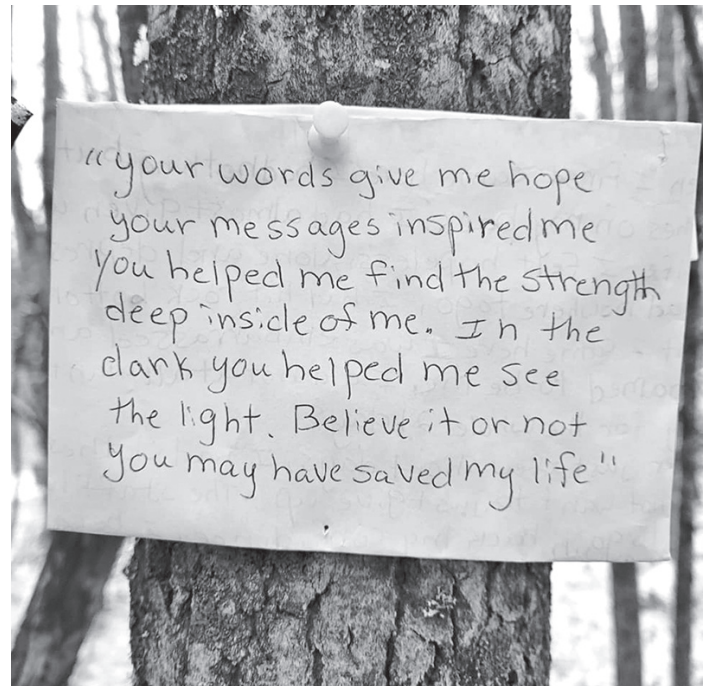 "your words give me hope
your messages inspired me
You helped me find the strength
deep inside of me. In the
dark you helped me see
the light. Believe it or not
you may have saved my life"